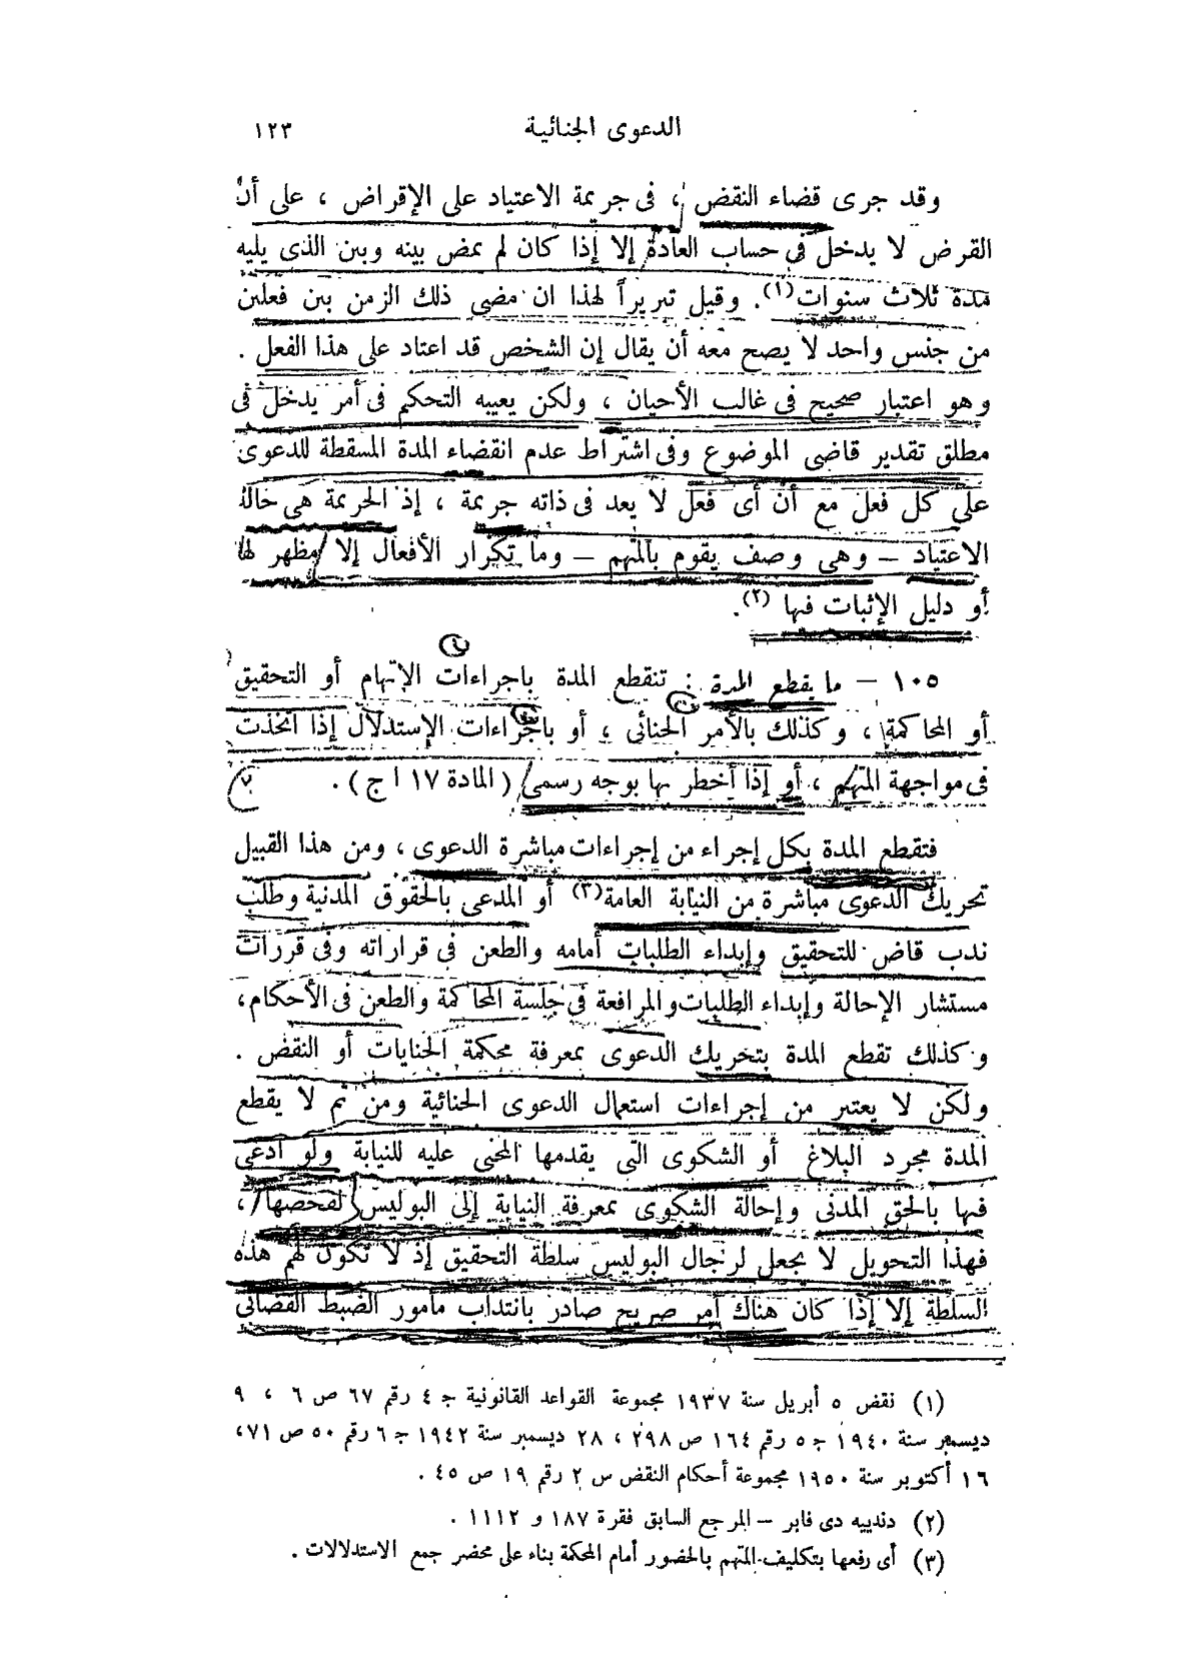 الدعوى الجنائية ١٢٣
وقد جرى قضاء النقض ، فى جريمة الاعتياد على الإقراض ، على أن
القرض لا يدخل فى حساب العادة إلا إذا كان لم يمض بينه وبين الذى يليه
مدة ثلاث سنوات (١). وقيل تبريراً لهذا ان مضى ذلك الزمن بين فعلين
من جنس واحد لا يصح معه أن يقال إن الشخص قد اعتاد على هذا الفعل .
وهو اعتبار صحيح فى غالب الأحيان ، ولكن يعيبه التحكم فى أمر يدخل فى
مطلق تقدير قاضى الموضوع وفى اشتراط عدم انقضاء المدة المسقطة للدعوى
على كل فعل مع أن أى فعل لا يعد فى ذاته جريمة ، إذ الجريمة هى حالة
الاعتياد – وهى وصف يقوم بالمتهم – وما تكرار الأفعال إلا مظهر لها
أو دليل الإثبات فيها (٢).
١٠٥ – ما يقطع المدة : تنقطع المدة باجراءات الإتهام أو التحقيق
أو المحاكمة ، وكذلك بالأمر الجنائى ، أو باجراءات الإستدلال إذا اتخذت
فى مواجهة المتهم ، أو إذا أخطر بها بوجه رسمى ( المادة ١٧ ا ج ) .
فتقطع المدة بكل إجراء من إجراءات مباشرة الدعوى ، ومن هذا القبيل
تحريك الدعوى مباشرة من النيابة العامة (٣) أو المدعى بالحقوق المدنية وطلب
ندب قاض للتحقيق وإبداء الطلبات أمامه والطعن فى قراراته وفى قررات
مستشار الإحالة وإبداء الطلبات والمرافعة فى جلسة المحاكمة والطعن فى الأحكام ،
وكذلك تقطع المدة بتحريك الدعوى بمعرفة محكمة الجنايات أو النقض .
ولكن لا يعتبر من إجراءات استعمال الدعوى الجنائية ومن ثم لا يقطع
المدة مجرد البلاغ أو الشكوى التى يقدمها المجنى عليه للنيابة ولو ادعى
فيها بالحق المدنى وإحالة الشكوى بمعرفة النيابة إلى البوليس لفحصها ،
فهذا التحويل لا يجعل لرجال البوليس سلطة التحقيق إذ لا تكون لهم هذه
السلطة إلا إذا كان هناك أمر صريح صادر بانتداب مأمور الضبط القضائى
(١) نقض ٥ أبريل سنة ١٩٣٧ مجموعة القواعد القانونية ج ٤ رقم ٦٧ ص ٦ ، ٩
ديسمبر سنة ١٩٤٠ ج ٥ رقم ١٦٤ ص ٢٩٨ ، ٢٨ ديسمبر سنة ١٩٤٢ ج ٦ رقم ٥٠ ص ٧١ ،
١٦ أكتوبر سنة ١٩٥٠ مجموعة أحكام النقض س ٢ رقم ١٩ ص ٤٥ .
(٢) دندييه دى فابر – المرجع السابق فقرة ١٨٧ و ١١١٢ .
(٣) أى رفعها بتكليف المتهم بالحضور أمام المحكمة بناء على محضر جمع الاستدلالات .